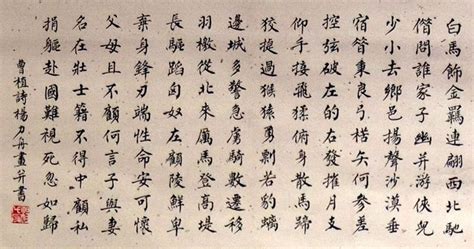 白馬飾金羈連翩西北馳
借問誰家子幽并游俠兒
少小去鄉邑揚聲沙漠垂
宿昔秉良弓楛矢何參差
控弦破左的右發摧月支
仰手接飛猱俯身散馬蹄
狡捷過猴猿勇剽若豹螭
邊城多警急虜騎數遷移
羽檄從北來厲馬登高堤
長驅蹈匈奴左顧陵鮮卑
棄身鋒刃端性命安可懷
父母且不顧何言子與妻
名在壯士籍不得中顧私
捐軀赴國難視死忽如歸
曹植詩楊力舟畫并書